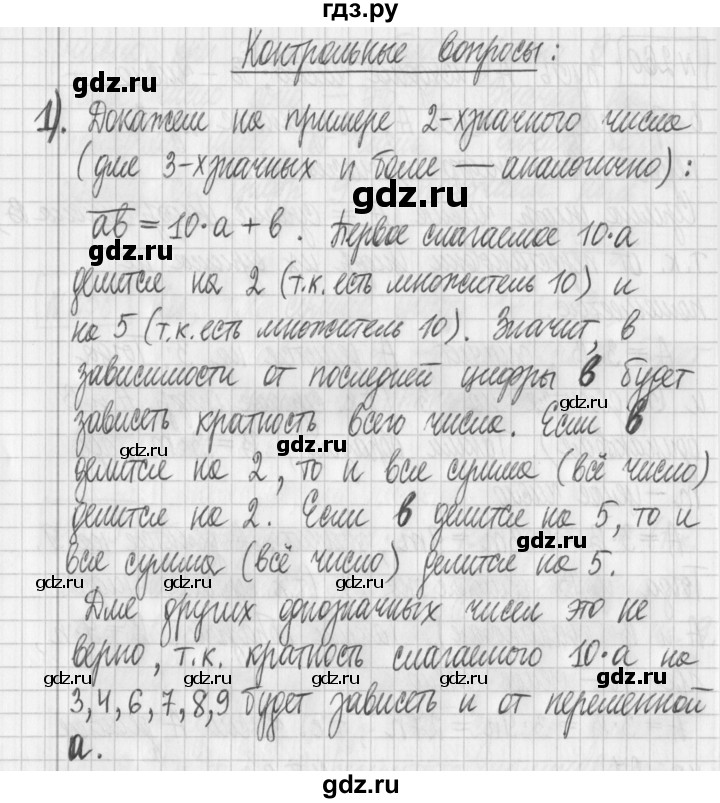 гдз.ру
Контрольные вопросы:
gdz.ru
1). Докажем на примере 2-хзначного числа
(для 3-хзначных и более — аналогично):
gdz.ru
ab = 10·a + b. Первое слагаемое 10·a
делится на 2 (т.к. есть множитель 10) и
на 5 (т.к. есть множитель 10). Значит, в
зависимости от последней цифры b будет
gdz.ru
зависеть кратность всего числа. Если b
gdz.ru gdz.ru
делится на 2, то и вся сумма (всё число)
делится на 2. Если b делится на 5, то и
gdz.ru
вся сумма (всё число) делится на 5.
gdz.ru gdz.ru gdz.ru
Для других однозначных чисел это не
верно, т.к. кратность слагаемого 10·a на
gdz.ru gdz.ru
3,4,6,7,8,9 будет зависеть и от переменной
a.
gdz.ru